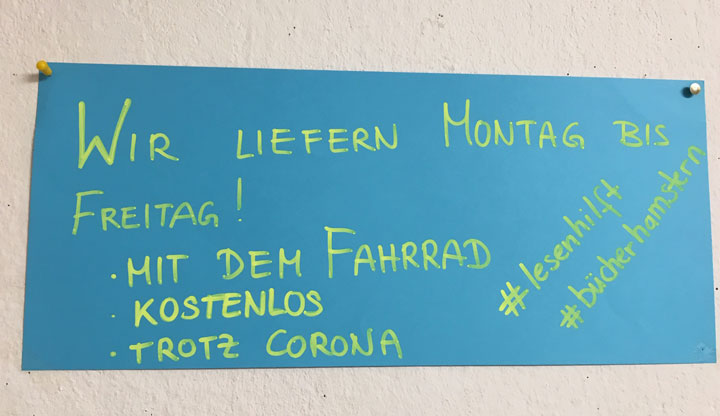 WIR LIEFERN MONTAG BIS
FREITAG!
· MIT DEM FAHRRAD
· KOSTENLOS
· TROTZ CORONA
#lesenhilft
#bücherhamstern